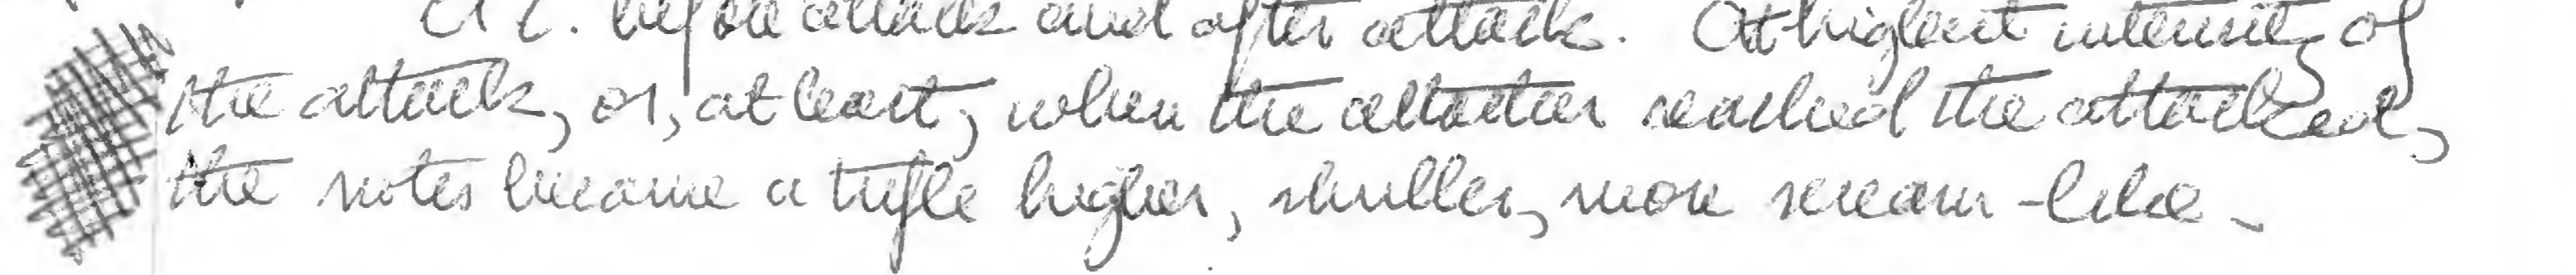 before attack and after attack. At highest intensity of
the attack, or, at least, when the attacker reached the attacked,
the notes became a trifle higher, shriller, more scream-like.